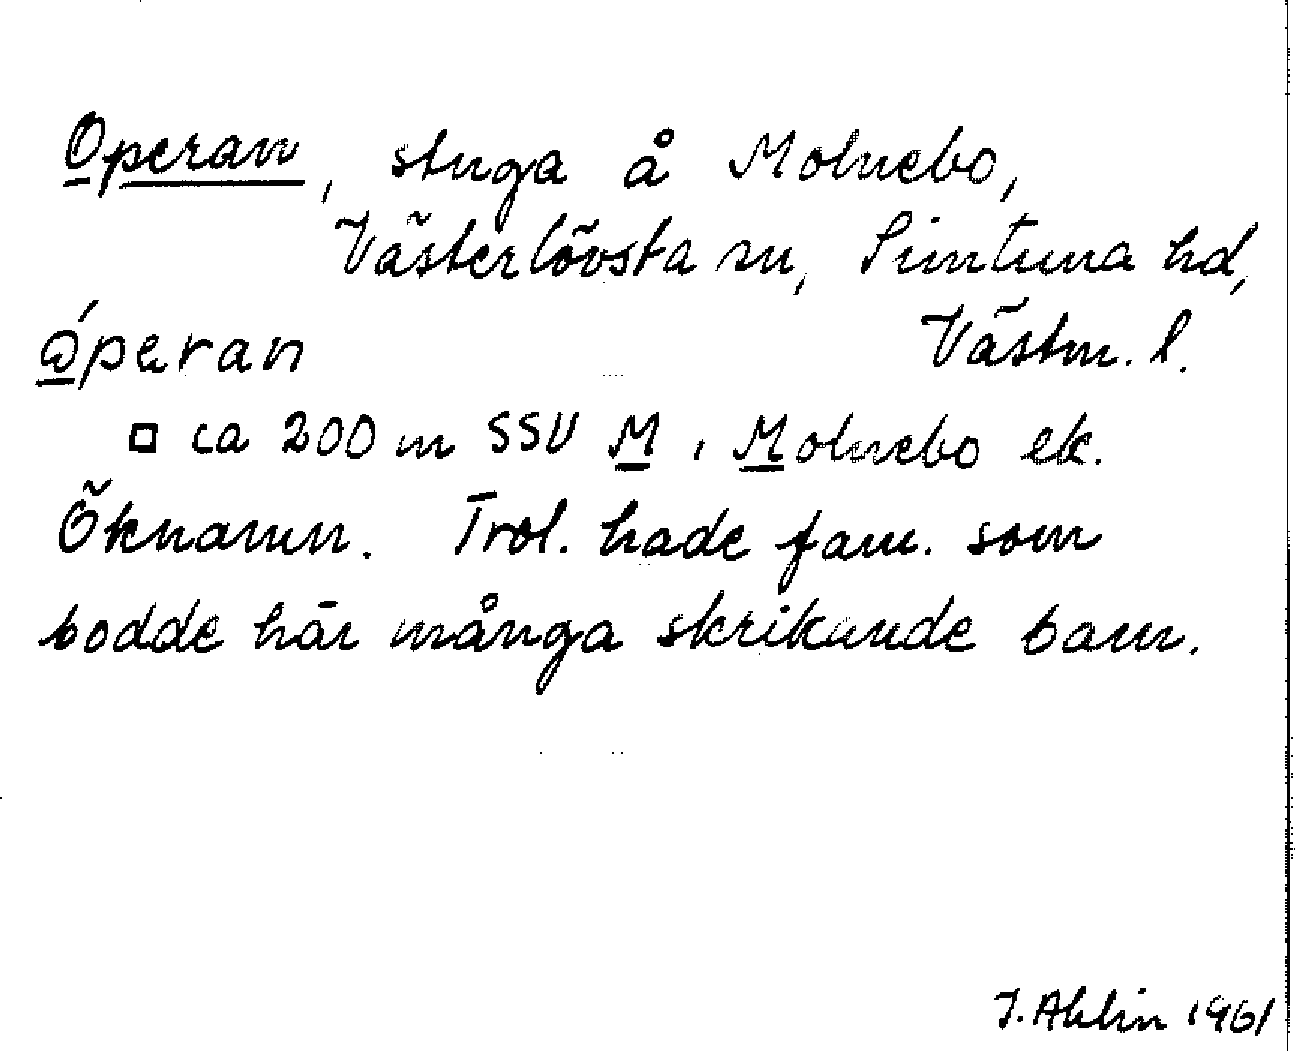 Operan, stuga å Molnebo,
Västerlövsta sn, Simtuna hd,
óperan Västm. l.
□ ca 200 m SSV M i Molnebo ek.
Öknamn. Trol. hade fam. som
bodde här många skrikande barn.
J. Ahlin 1961